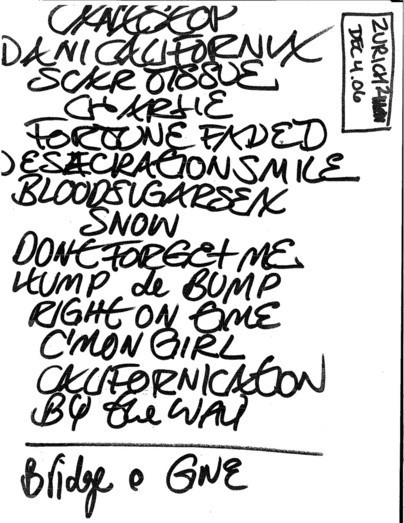 CAN'T STOP
DANI CALIFORNIA
SCAR TISSUE
CHARLIE
FORTUNE FADED
DESECRATION SMILE
BLOODSUGARSEX
SNOW
DONT FORGET ME
HUMP de BUMP
RIGHT ON TIME
C'MON GIRL
CALIFORNICATION
BY the WAY
Bridge e GIVE
ZURICH
DEC 4.06